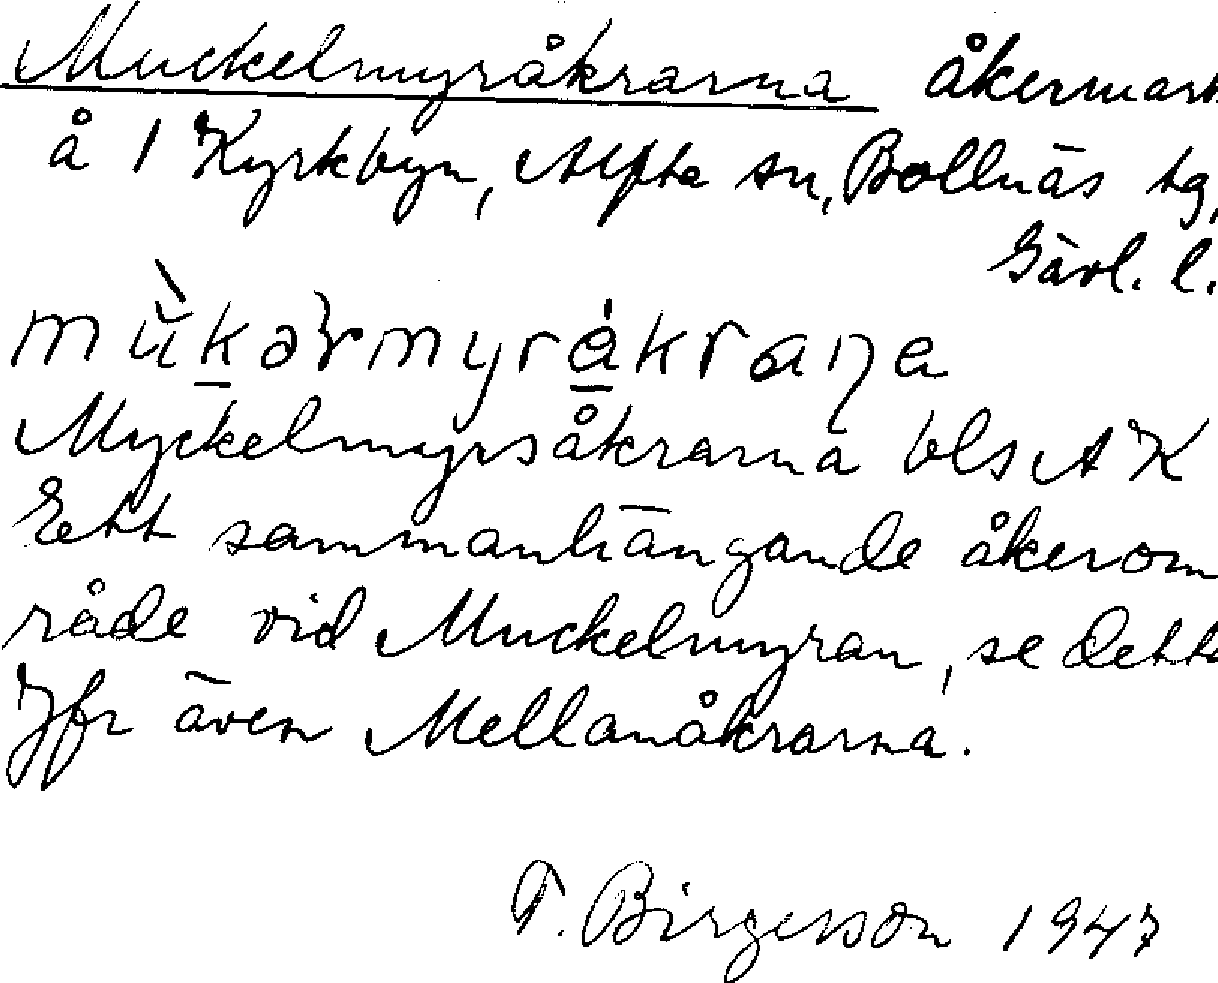 Muckelmyråkrarna åkermark
å 1 Kyrkbyn, Alfta sn, Bollnäs tg,
Gävl. l.
Myckelmyrsåkrarna bls AK
Ett sammanhängande åkerom
råde vid Muckelmyran, se detta
Jfr även Mellanåkrarna.
T. Birgersson 1947